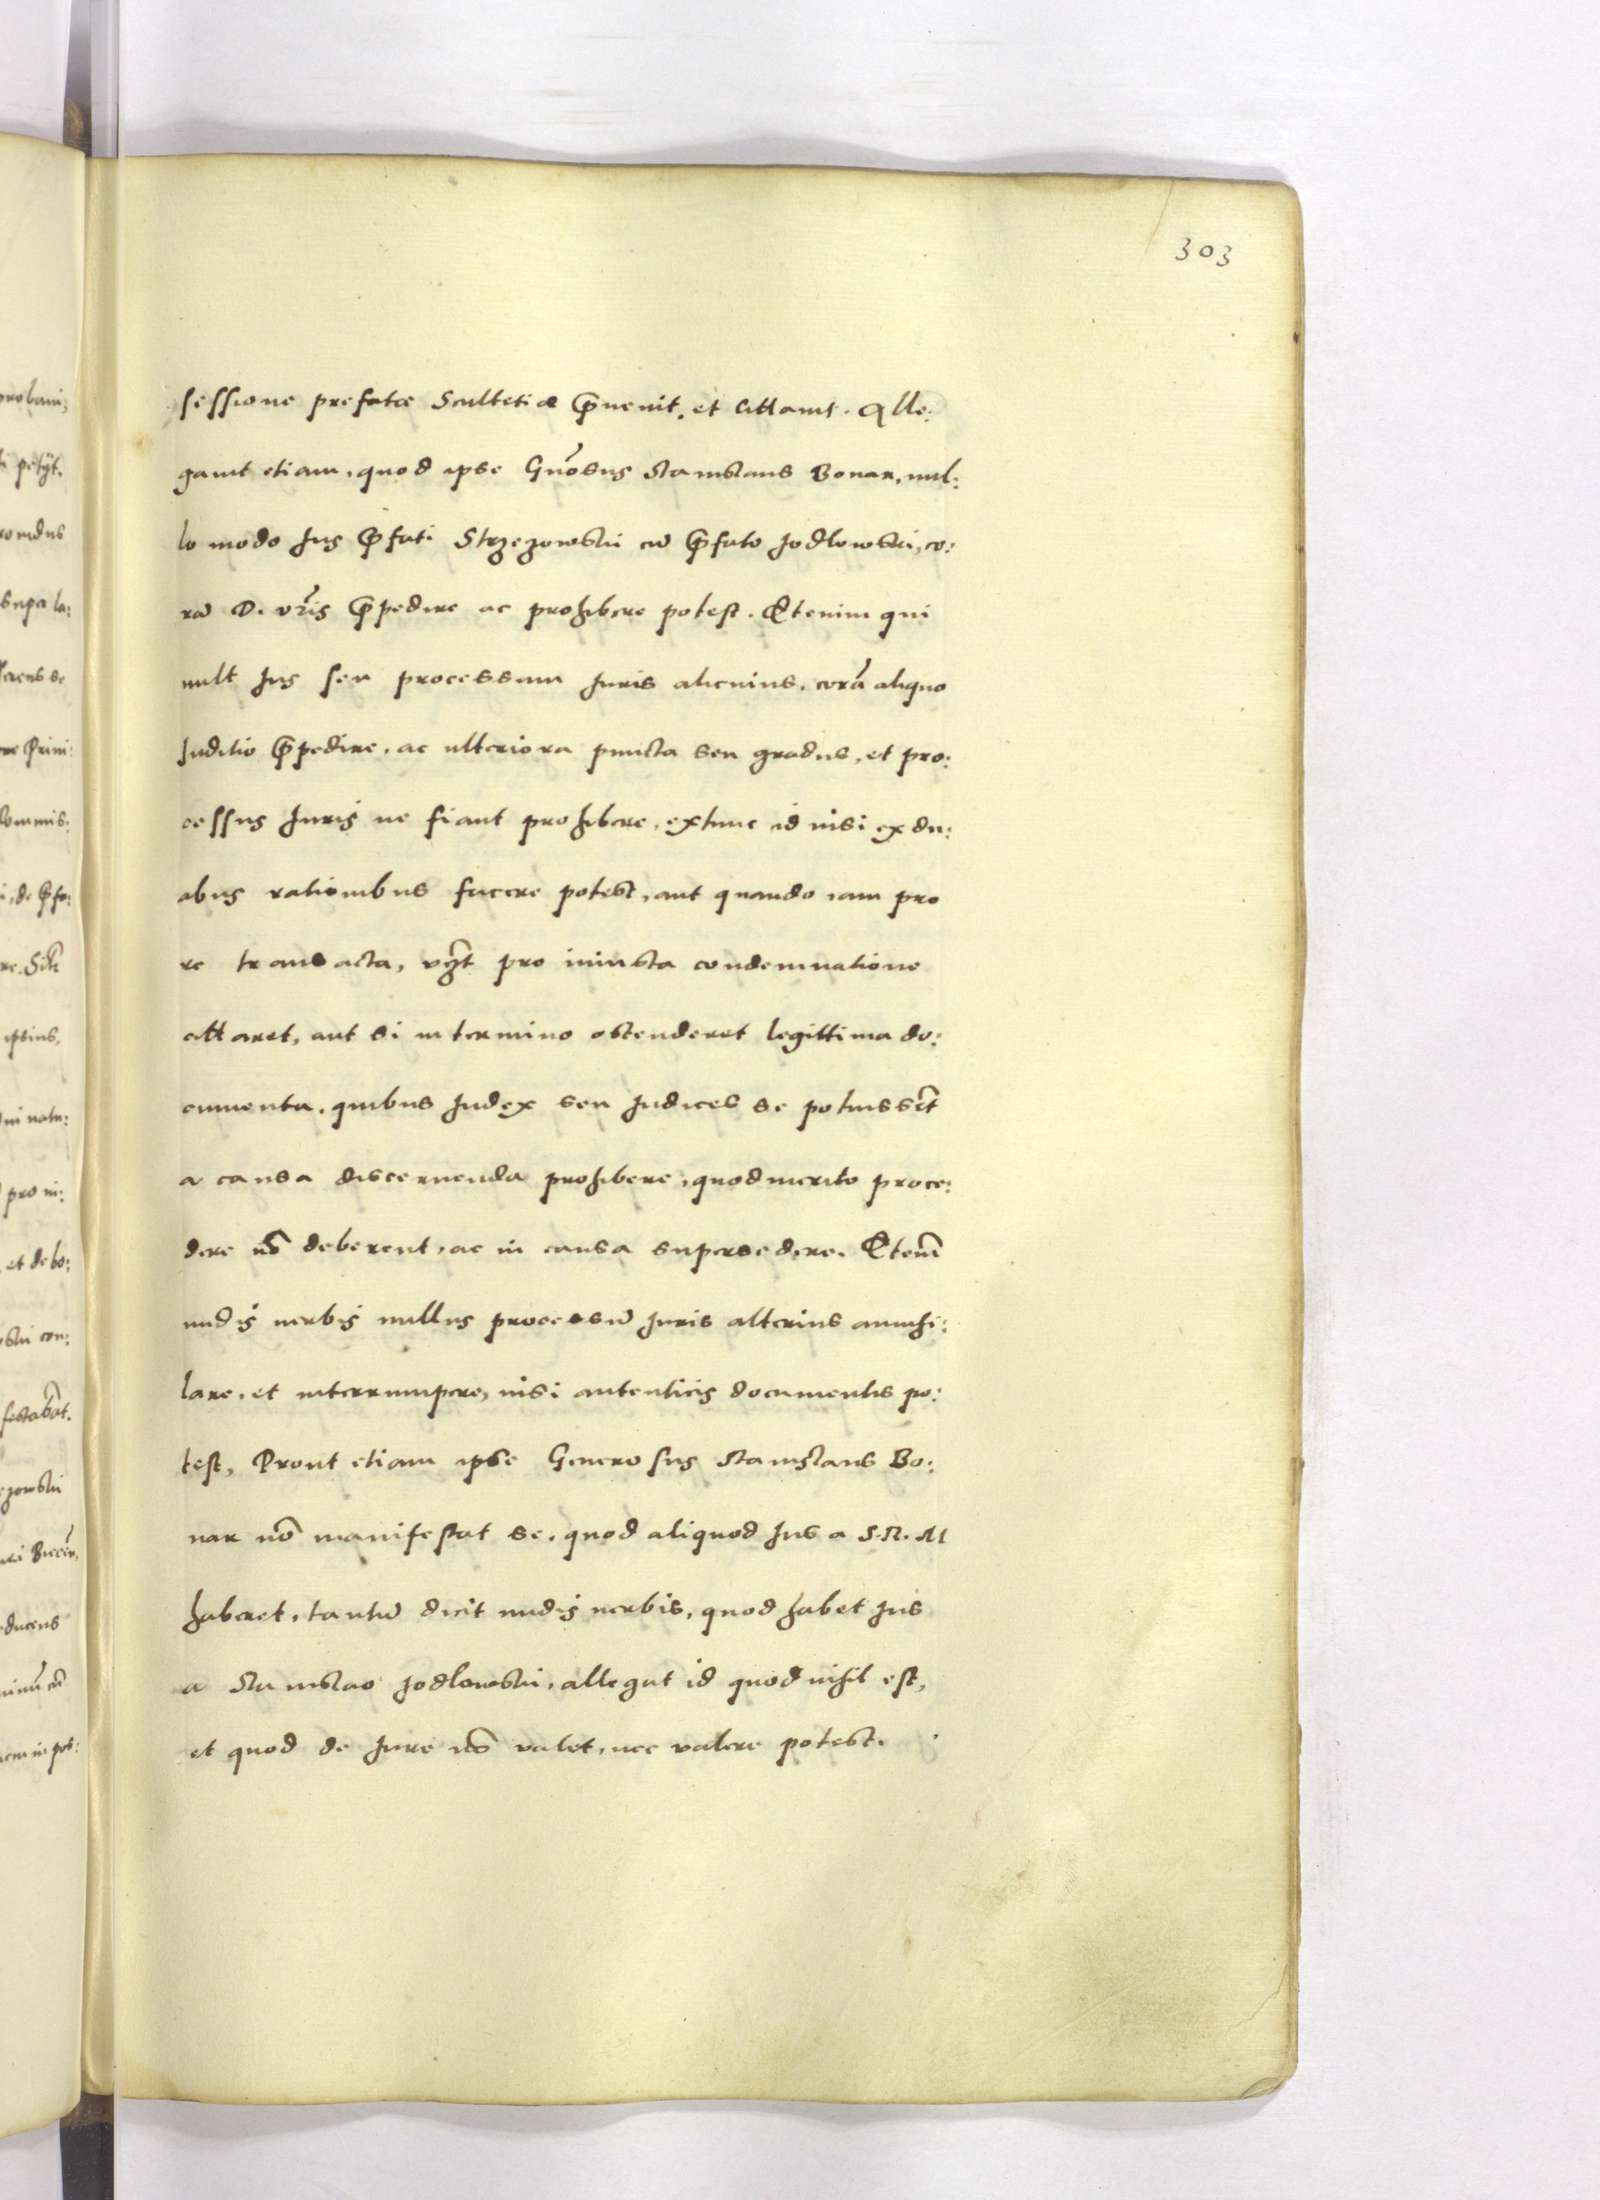 303
sessione prefatæ Scultetiæ p̄uenit, et cittauit. Alle:
gauit etiam, quod ipse Gn̄osus Stanislaus Bonar, nul:
lo modo Jus p̄fati Strzezowski cū p̄fato Jodlowski, co:
rā D. vr̄is p̄pedire ac prohibere potest. Etenim qui
uult Jus seu processum Juris alicuius, corā aliquo
Juditio p̄pedire, ac ulteriora puncta seu gradus, et pro:
cessus Juris ne fiant prohibere, extunc id nisi ex du:
abus rationibus facere potest, aut quando iam pro
re transacta, vḡt pro iniusta condemnatione
cittaret, aut si in termino ostenderet legittima do:
cumenta, quibus Judex seu Judices se potuissēt
a causa discernenda prohibere, quod merito proce:
dere nō deberent, ac in causa supersedere. Etenī
nudis uerbis nullus processū Juris alterius annihi:
lare, et interrumpere, nisi autenticis documentis po:
test, Prout etiam ipse Generosus Stanislaus Bo:
nar nō manifestat se, quod aliquod Jus a S. R. M
haberet, tantū dicit nudis uerbis, quod habet Jus
a Stanislao Jodlowski, allegat id quod nihil est,
et quod de Jure nō valet, nec valere potest.
probaui;
petÿt.
supa la:
Prini:
Commis:
, de p̄fa:
ipsius,
natu:
pro ni:
et debo:
con:
festabāt.
ducens